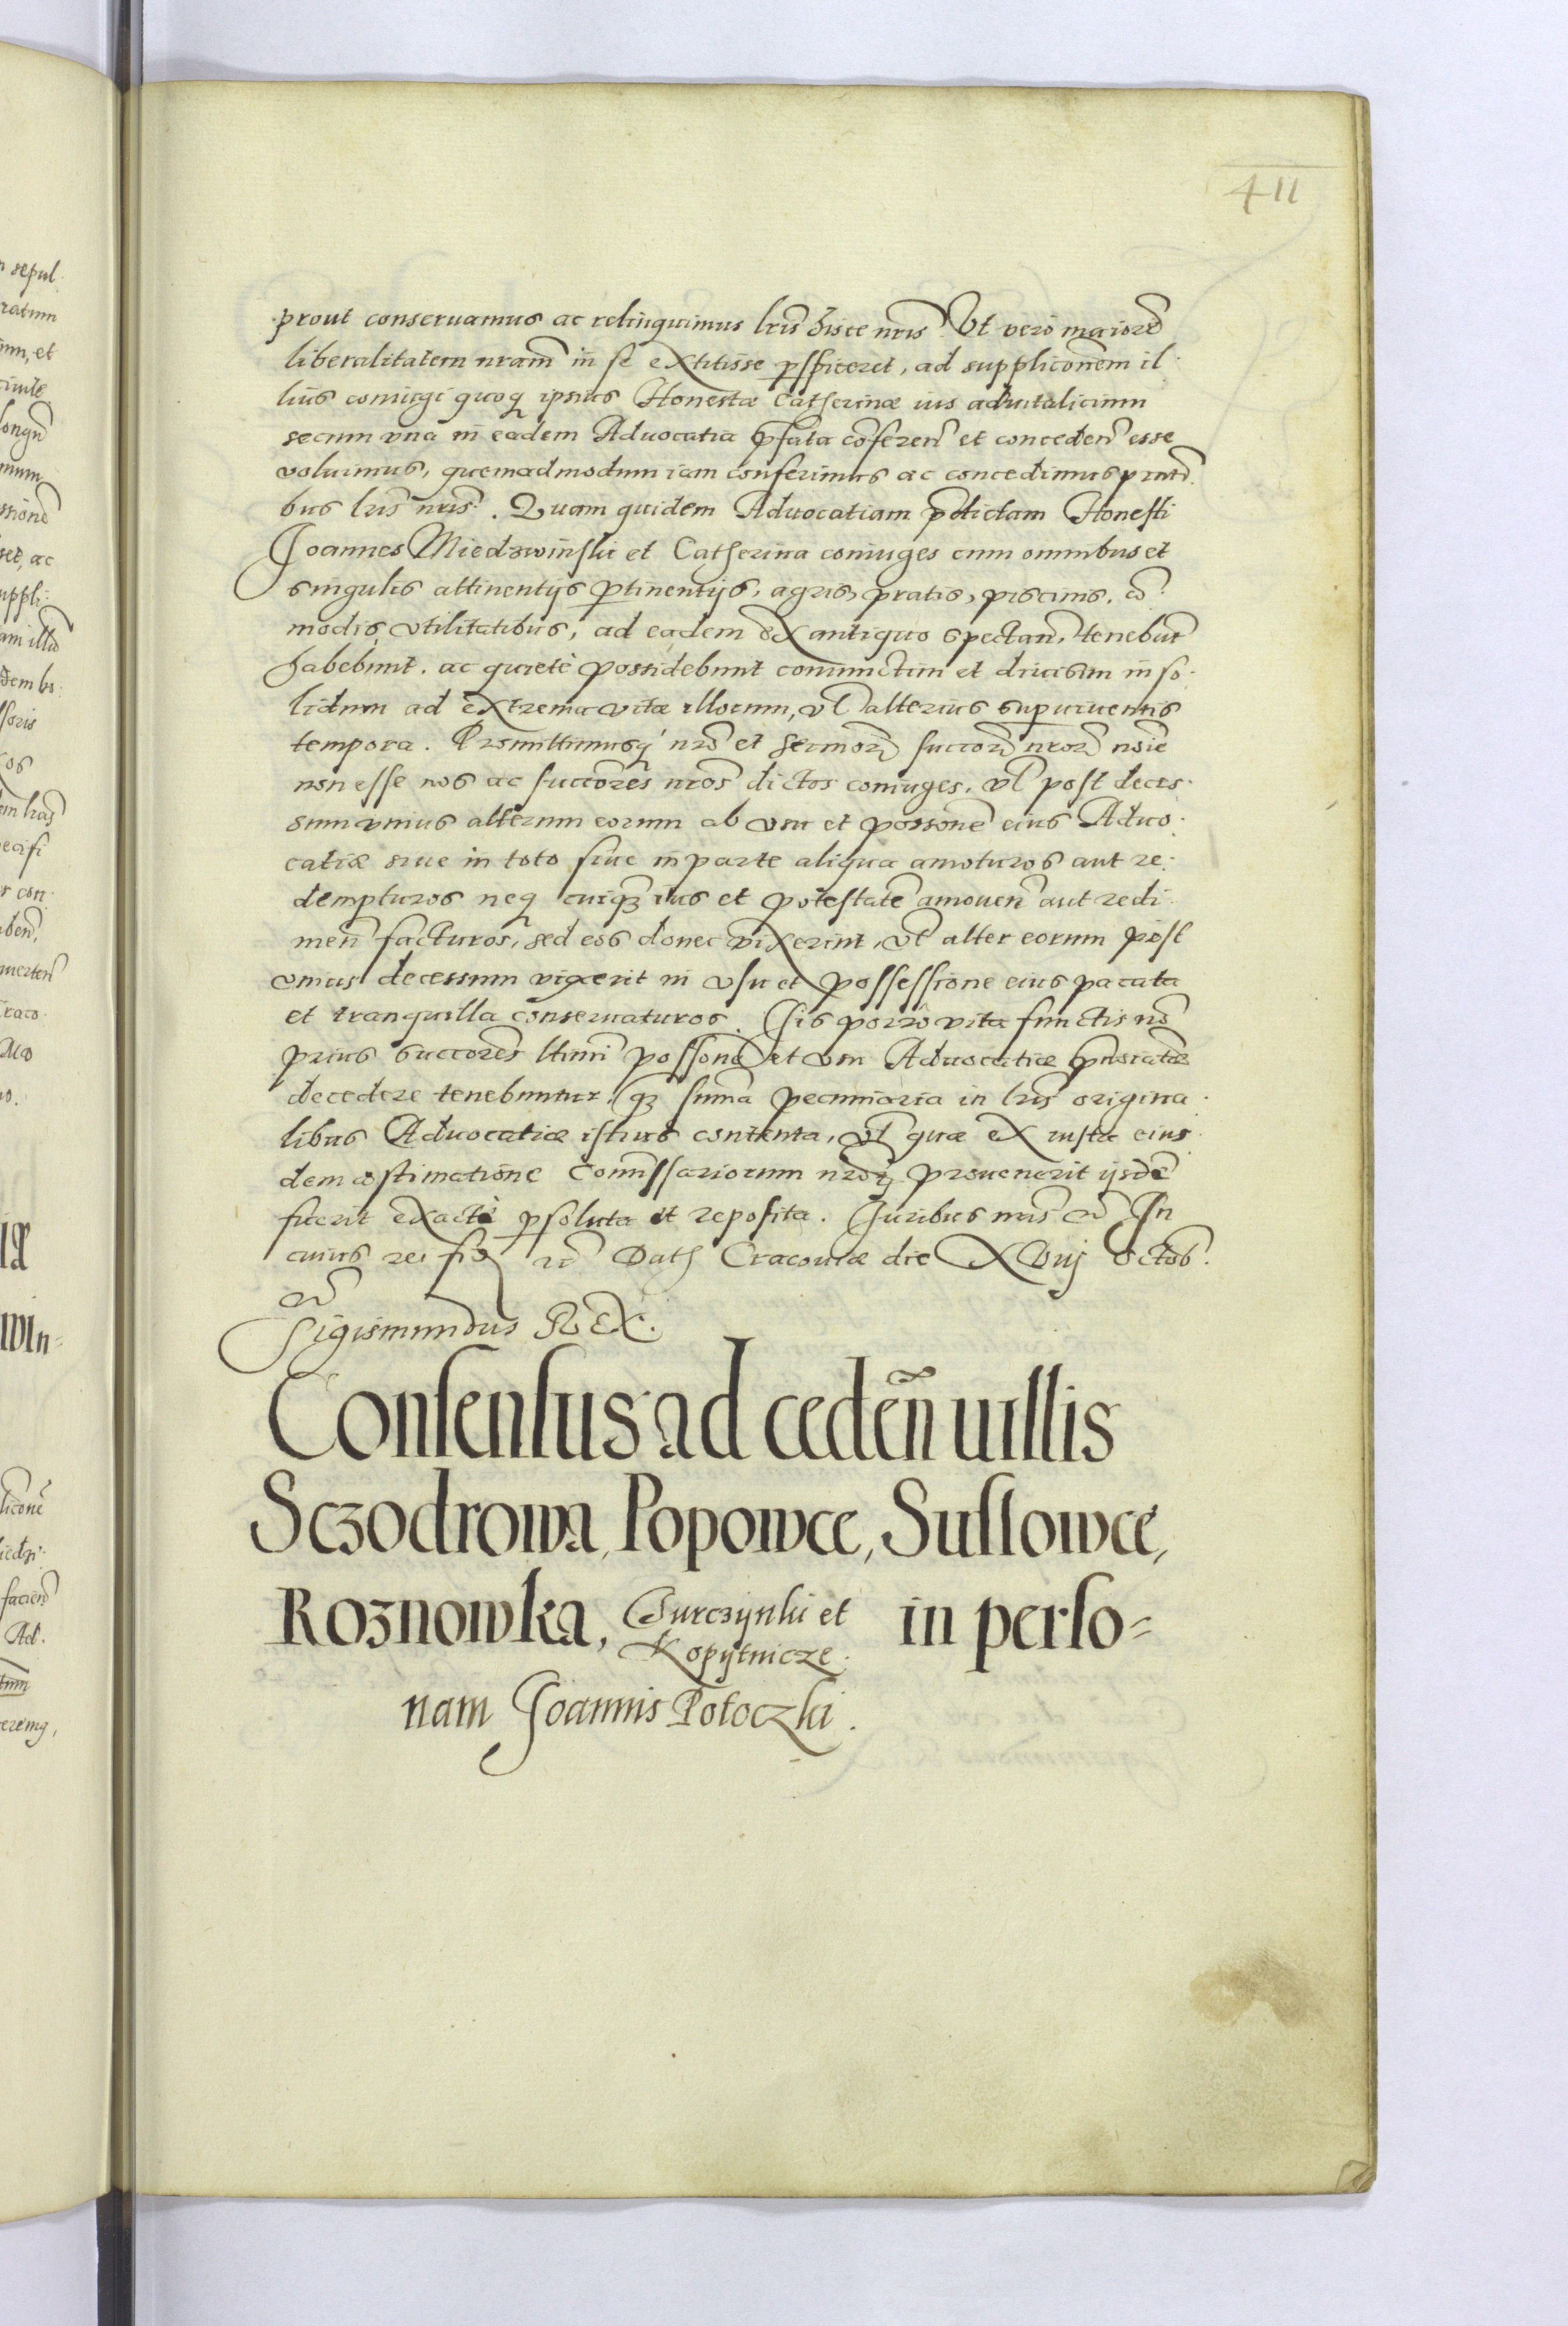 411
prout conseruamus ac relinquimus lris hisce nris. Vt vero maiorẽ
liberalitatem nram in se extitisse pspiceret, ad supplicõnem il-
lius coniugi quoq ipsius Honestæ Catherinæ ius aduitalicium
secum vna in eadem Aduocatia pfata cõferen et conceden esse
voluimus, quemadmodum iam conferimus ac concedimus pntĩ
bus lris nris. Quam quidem Aduocatiam pdictam Honesti
Joannes Miedzwinski et Catherina coniuges cum omnibus et
singulis attinentijs ptinentijs, agris, pratis, piscinis, cõ
modis, vtilitatibus, ad eadem ex antiquo spectañ, tenebũt
habebunt, ac quietè possidebunt coniunctim et diuisim in so-
lidum ad extrema vitæ illorum, vl alterius superuiuentis
tempora. Promittimusq nro et Sermorũ succorũ nrorũ noĩe
non esse nos ac succores nros dictos coniuges, vl post deces-
sum vnius alterum eorum ab vsu et possonẽ eius Aduo-
catiæ siue in toto siue in parte aliqua amoturos aut re-
dempturos neq cuiq ius et potestatẽ amouen aut redi-
men facturos, sed eos donec vixerint, vl alter eorum post
vnius decessum vixerit in vsu et possessione eius pacata
et tranquilla conseruaturos. His porrò vita functis nõ
prius succores ltimi possone et vsu Aduocatiæ
decedere tenebuntur, q summa pecuniaria in lris origina-
libus Aduocatiæ istius contenta, vl quæ ex iusta eius-
dem æstimatione Comissariorum nrorũ prouenerit ijsdẽ
fuerit exactè psoluta et reposita. Juribus nris &c In
cuius rei fid &c Dat Cracouiæ die XVIIj Octob.
&c
Sigismundus REX.
Consensus ad cedeñ uillis
Sczodrowa, Popowce, Suslowce,
Roznowka, Jurczynki et Kopytnicze. in perso-
nam Joannis Potoczki.